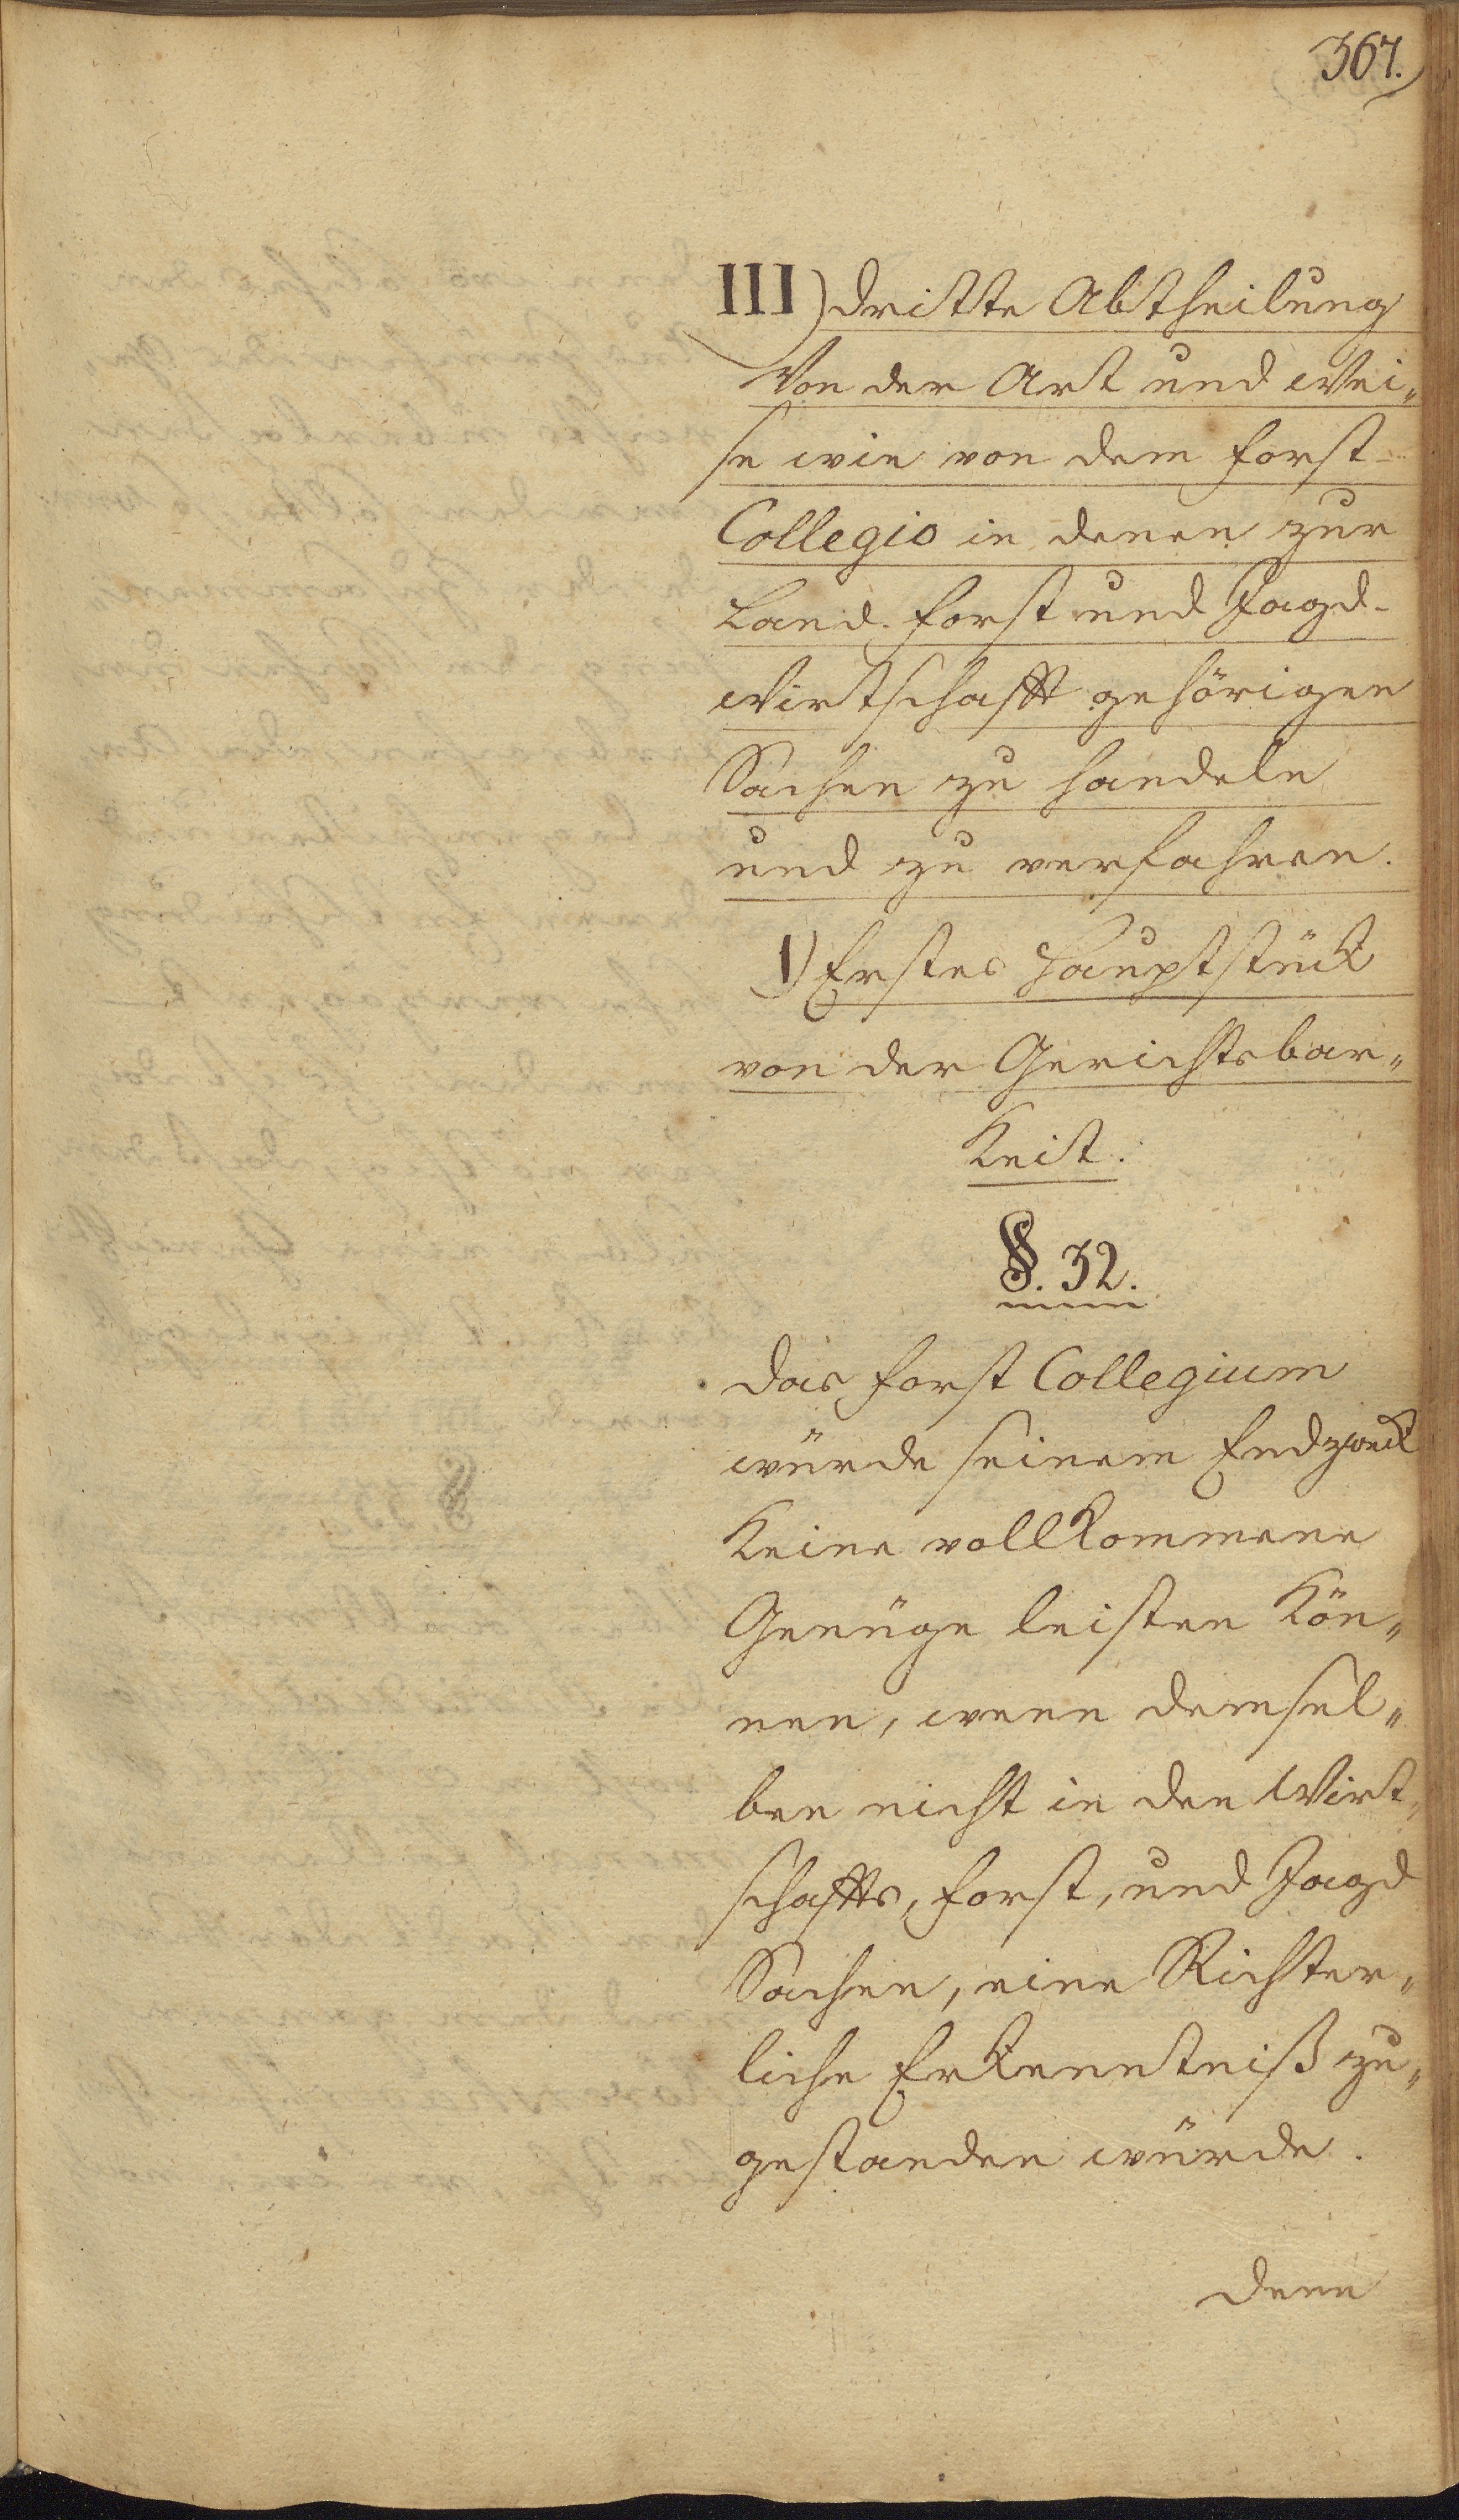 367.
III) dritte Abtheilung
Von der Art und Wei„
se wie von dem Forst-
Collegio in denen zur
Land. Forst und Jagd-
Wirtschafft gehörigen
Sachen zu handeln
und zu verfahren.
1) Erstes Hauptstück
von der Gerichtsbar„
Keit.
§. 32.
das Forst Collegium
würde seinem Endzweck
Keine vollkommene
Genüge leisten Kön„
nen, wenn demsel„
ben nicht in den Wirt„
schaffts, Forst, und Jagd
Sachen, eine Richter„
liche Erkenntniß zu„
gestanden würde.
denn